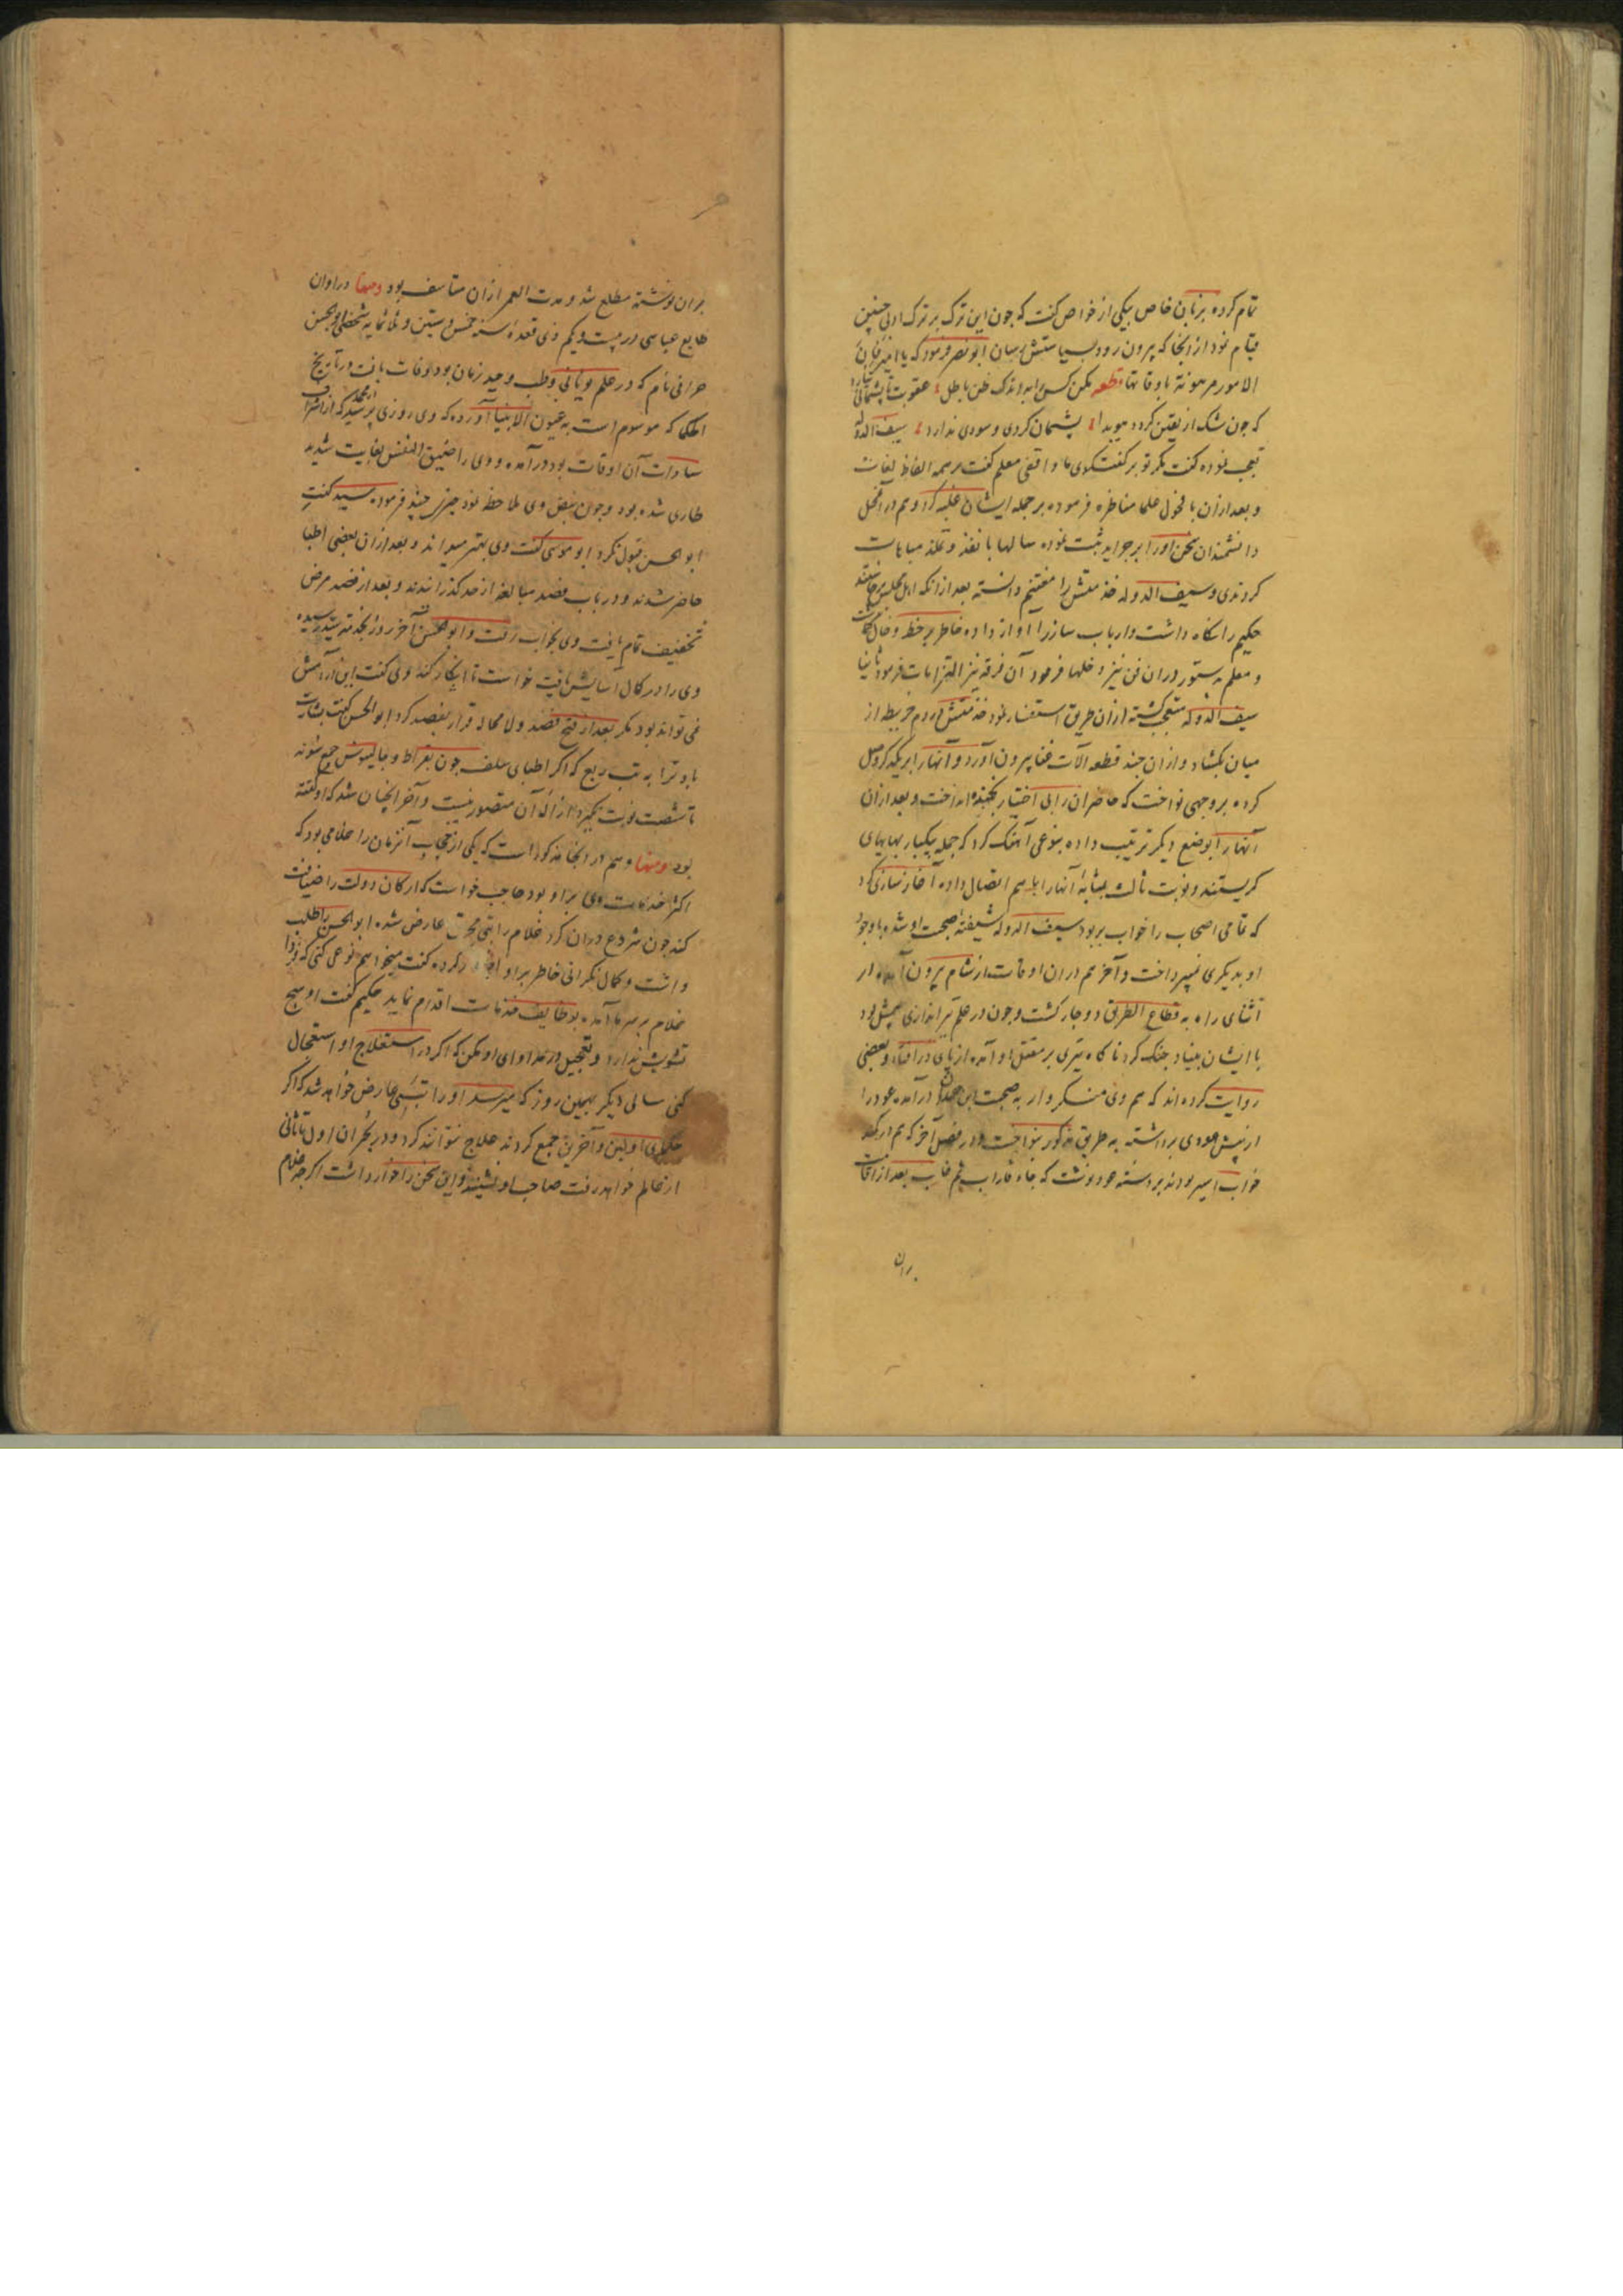 تمام کرده بزبان خاص بیکی از خواص گفت که چون این ترک بر ترک ادبی چنین
قیام نمود از اینجا که بیرون رود بسیاستش برسان ابونصر فرمود که یا امیر فان
الامور مرهونة باوقاتها قطعه مکن کسی را به اندک ظن باطل عقوبت تا پشیمانی
که چون شک از یقین گردد هویدا پشیمان گردی و سودی ندارد سیف الدوله
تعجب نموده گفت مگر تو بر گفتگوی ما واقفی معلم گفت بر همه الفاظ لغات
و بعد از آن با فحول علما مناظره فرموده بر جمله ایشان غلبه کرد و هم در آن محفل
دانشمندان سخن او را بر جراید ثبت نموده سالها باخذ و تلمذ مباهات
کردندی و سیف الدوله خدمتش را مغتنم دانسته بعد از آنکه اهل مجلس برخاستند
حکیم را نگاه داشت و ارباب ساز را آواز داده خاطر بر حظ و خال
و معلم بدستور در آن فن نیز دخلها فرمود آن فرقه نیز التزامات فرمود
سیف الدوله متعجب گشته از آن طریق استفسار نمود خدمتش در دم خریطه از
میان بگشاد و از آن چند قطعه آلات غنا بیرون آورد و آنها را بر یکدیگر وصل
کرده بر وجهی نواخت که حاضران را بی اختیار بخنده انداخت و بعد از آن
آنها را بوضع دیگر ترتیب داده بنوعی آهنگ کرد که جمله بیکبار بهایهای
گریستند و نوبت ثالث بمثابه آنها را بهم اتصال داده آغاز سازی کرد
که تمامی اصحاب را خواب بربود سیف الدوله شیفته صحبت او شده با وجود
او بدیگری نمیپرداخت و آخر هم در آن اوقات از شام بیرون آمده در
اثنای راه به قطاع الطریق دوچار گشت و چون در علم تیراندازی بیمثل بود
با ایشان بنیاد جنگ کرد ناگاه تیری بر مقتل او آمده از پای در افتاد و بعضی
روایت کرده اند که هم وی منکروار به صحبت ابن عباد در آمده عود را
از پیش عودی برداشته به طریق مذکور بنواخت و در فصل آخر که هم در کمند
خواب اسیر بودند بر دسته عود نوشت که جاء فاراب ثم غاب بعد از افاقت
بران
بران نوشته مطلع شد و مدت العمر از آن متاسف بود ومنها در اوان
طایع عباسی در بیست و یکم ذی قعده سنه خمس و ستین و ثلثمایه شخصی ابوالحسن
حرانی نام که در علم یونانی و طب وحید زمان بود وفات یافت در تاریخ
الحکما که موسوم است به عیون الانبیا آورده که وی روزی از اشراف
سادات آن اوقات بود در آمده و وی را ضیق النفس بغایت شدید
طاری شده بود و چون نبض وی ملاحظه نمود چیزی چند فرموده سید گفت
ابوالحسن قبول نکرد ابو موسی گفت وی بهتر میداند و بعد از آن بعضی اطبا
حاضر شدند و در باب فصد مبالغه از حد گذرانیدند و بعد از فصد مرض
تخفیف تمام یافت وی بخواب رفت و ابوالحسن آخر روز بخدمت سید رسیده
وی را در کمال آسایش یافت خواست تا انکار کند وی گفت این آرامش
نمی تواند بود مگر بعد از فتح فصد و لا محاله قرار بفصد کرد ابوالحسن گفت بشارت
باد ترا به تب ربع که اگر اطبای سلف چون بقراط و جالینوس جمع شوند
تا شصت نوبت نگیرد ازاله آن متصور نیست و آخر آنچنان شد که او گفته
بود ومنها و هم در اینجا مذکور است که یکی از حجاب آنزمان را غلامی بود که
اکثر خدمات وی بر او بود حاجب خواست که ارکان دولت را ضیافت
کند چون شروع در آن کرد غلام را تبی محرق عارض شده ابوالحسن را طلب
داشت و کمال نگرانی خاطر بر او کرده گفت میخواهم نوعی کنی که فردا
غلام بر سر ما آمده بوظایف خدمات اقدام نماید حکیم گفت او هیچ
تشویش ندارد و تعجیل در مداوای او مکن که اگر در استعلاج او استعجال
کنی سالی دیگر بهمین روز که میرسد او را تبی عارض خواهد شد که اگر
حکمای اولین و آخرین جمع گردند علاج نتوانند کرد و در بحران اول یا ثانی
از عالم خواهد رفت صاحب او نشنید و این سخن را خوار داشت اگر چه غلام